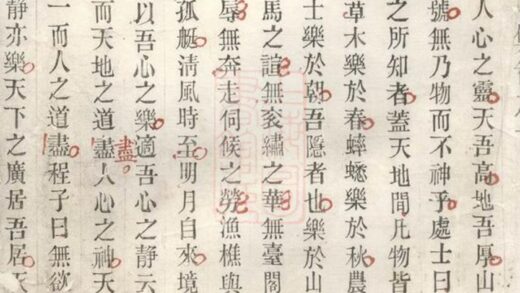 人心之靈天吾高地吾厚山
號無乃物而不神乎處士曰
之所知者蓋天地間凡物皆
草木樂於春蟀蟋樂於秋農
士樂於朝吾隱者也樂於山
馬之諠無衮繡之華無臺閣
辱無奔走伺候之勞漁樵與
孤艇淸風時至明月自來境
以吾心之樂適吾心之靜云
盡
而天地之道盡人心之神天
一而人之道盡程子曰無欲
靜亦樂天下之廣居吾居天